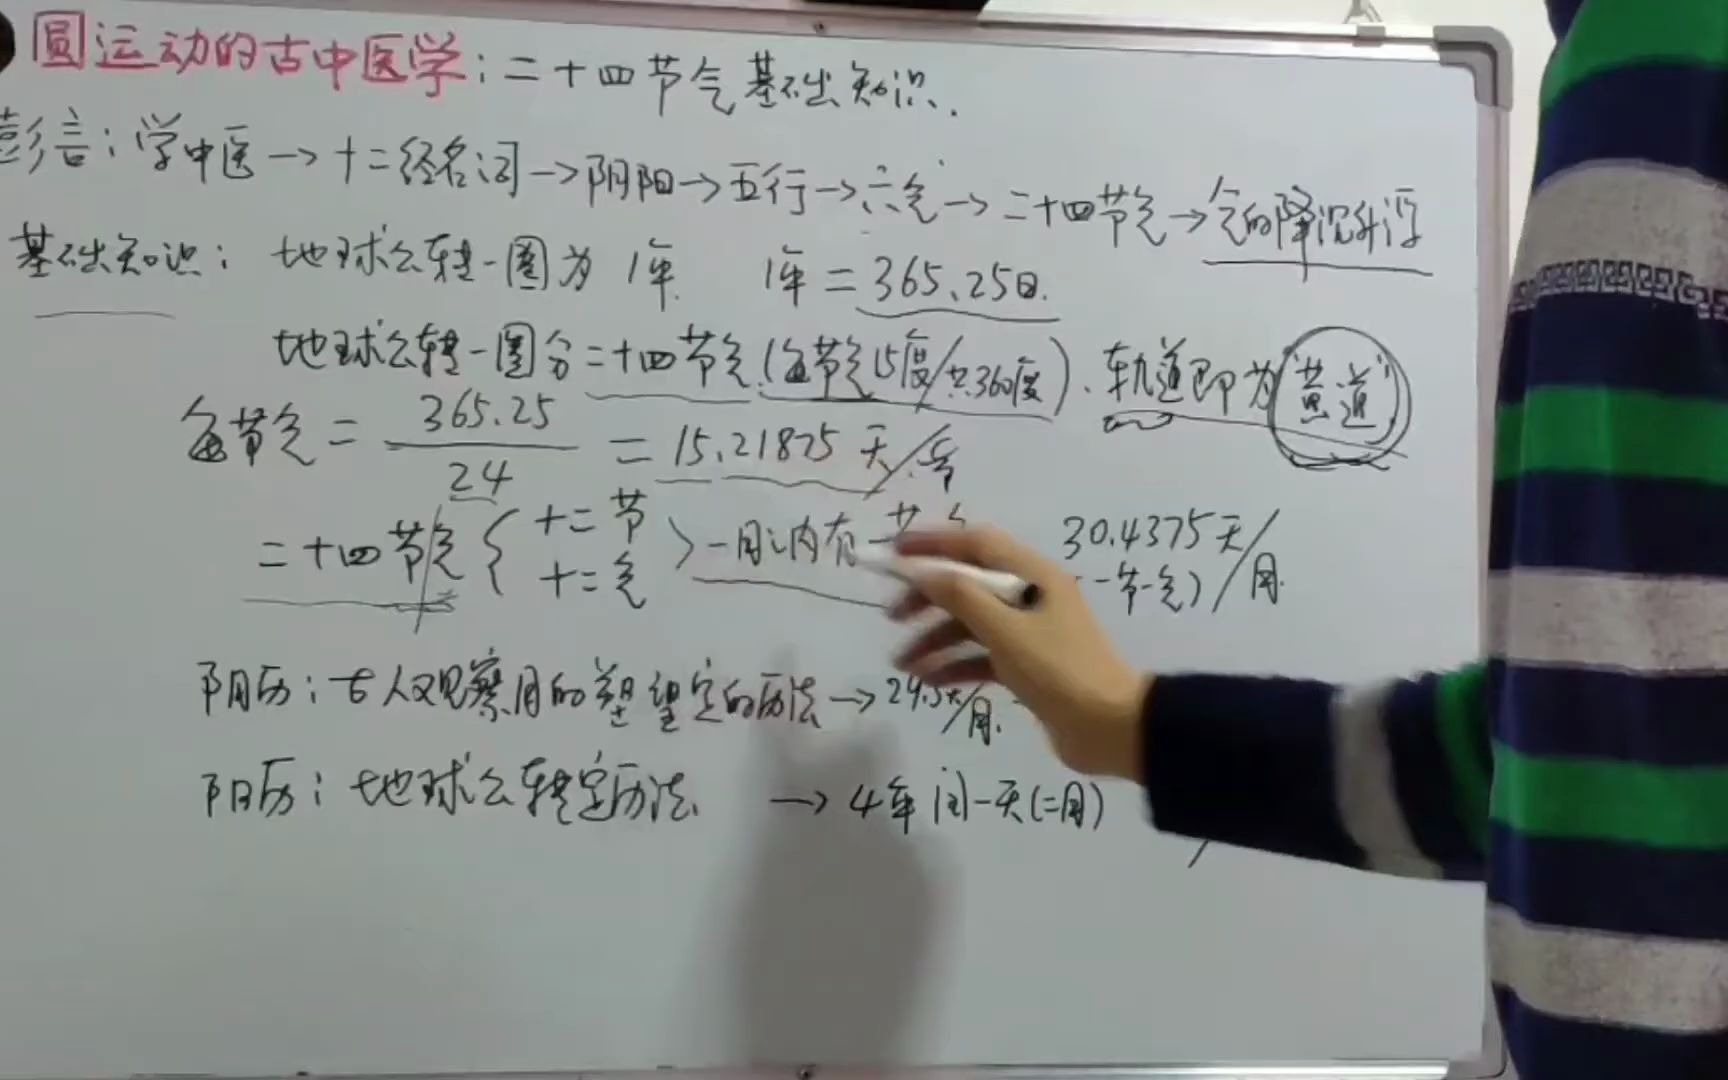 圆运动的古中医学：二十四节气基础知识.
彭言：学中医→十二经名词→阴阳→五行→六气→二十四节气→气的降沉升浮
基础知识：地球公转一圈为1年. 1年=365.25日.
地球公转一圈分二十四节气(每节气15度/共360度). 轨道即为"黄道"
每节气= 365.25/24 =15.21875天/节
二十四节气{十二节 十二气}一月内有一节 30.4375天/月.(一节一气)
阴历：古人观察月的塑望定的历法→29.5天/月.
阳历：地球公转定历法 →4年闰一天(二月)